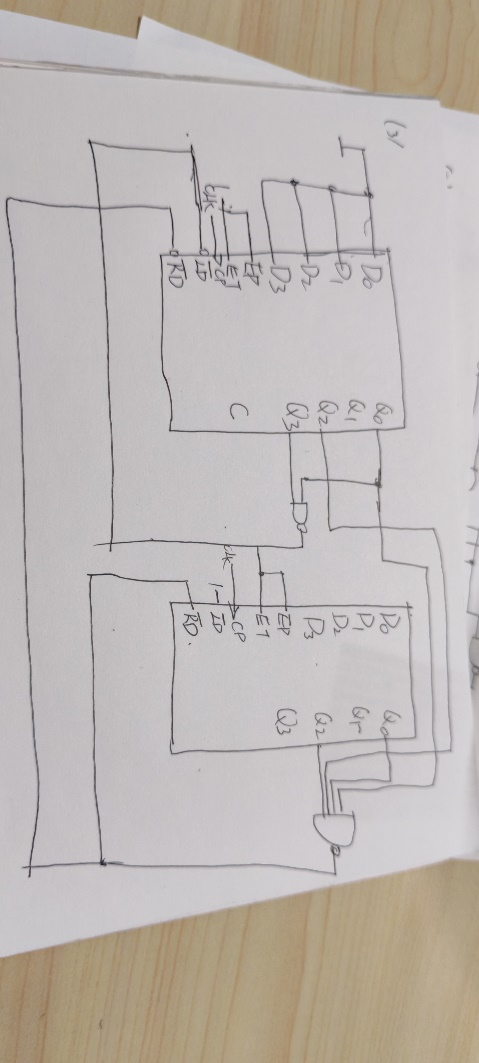 (3)
D0 D1 D2 D3 EP ET CP L̅D̅ R̅D̅
1
clk
Q0 Q1 Q2 Q3 C
D0 D1 D2 D3 EP ET CP L̅D̅ R̅D̅
clk
1
Q0 Q1 Q2 Q3